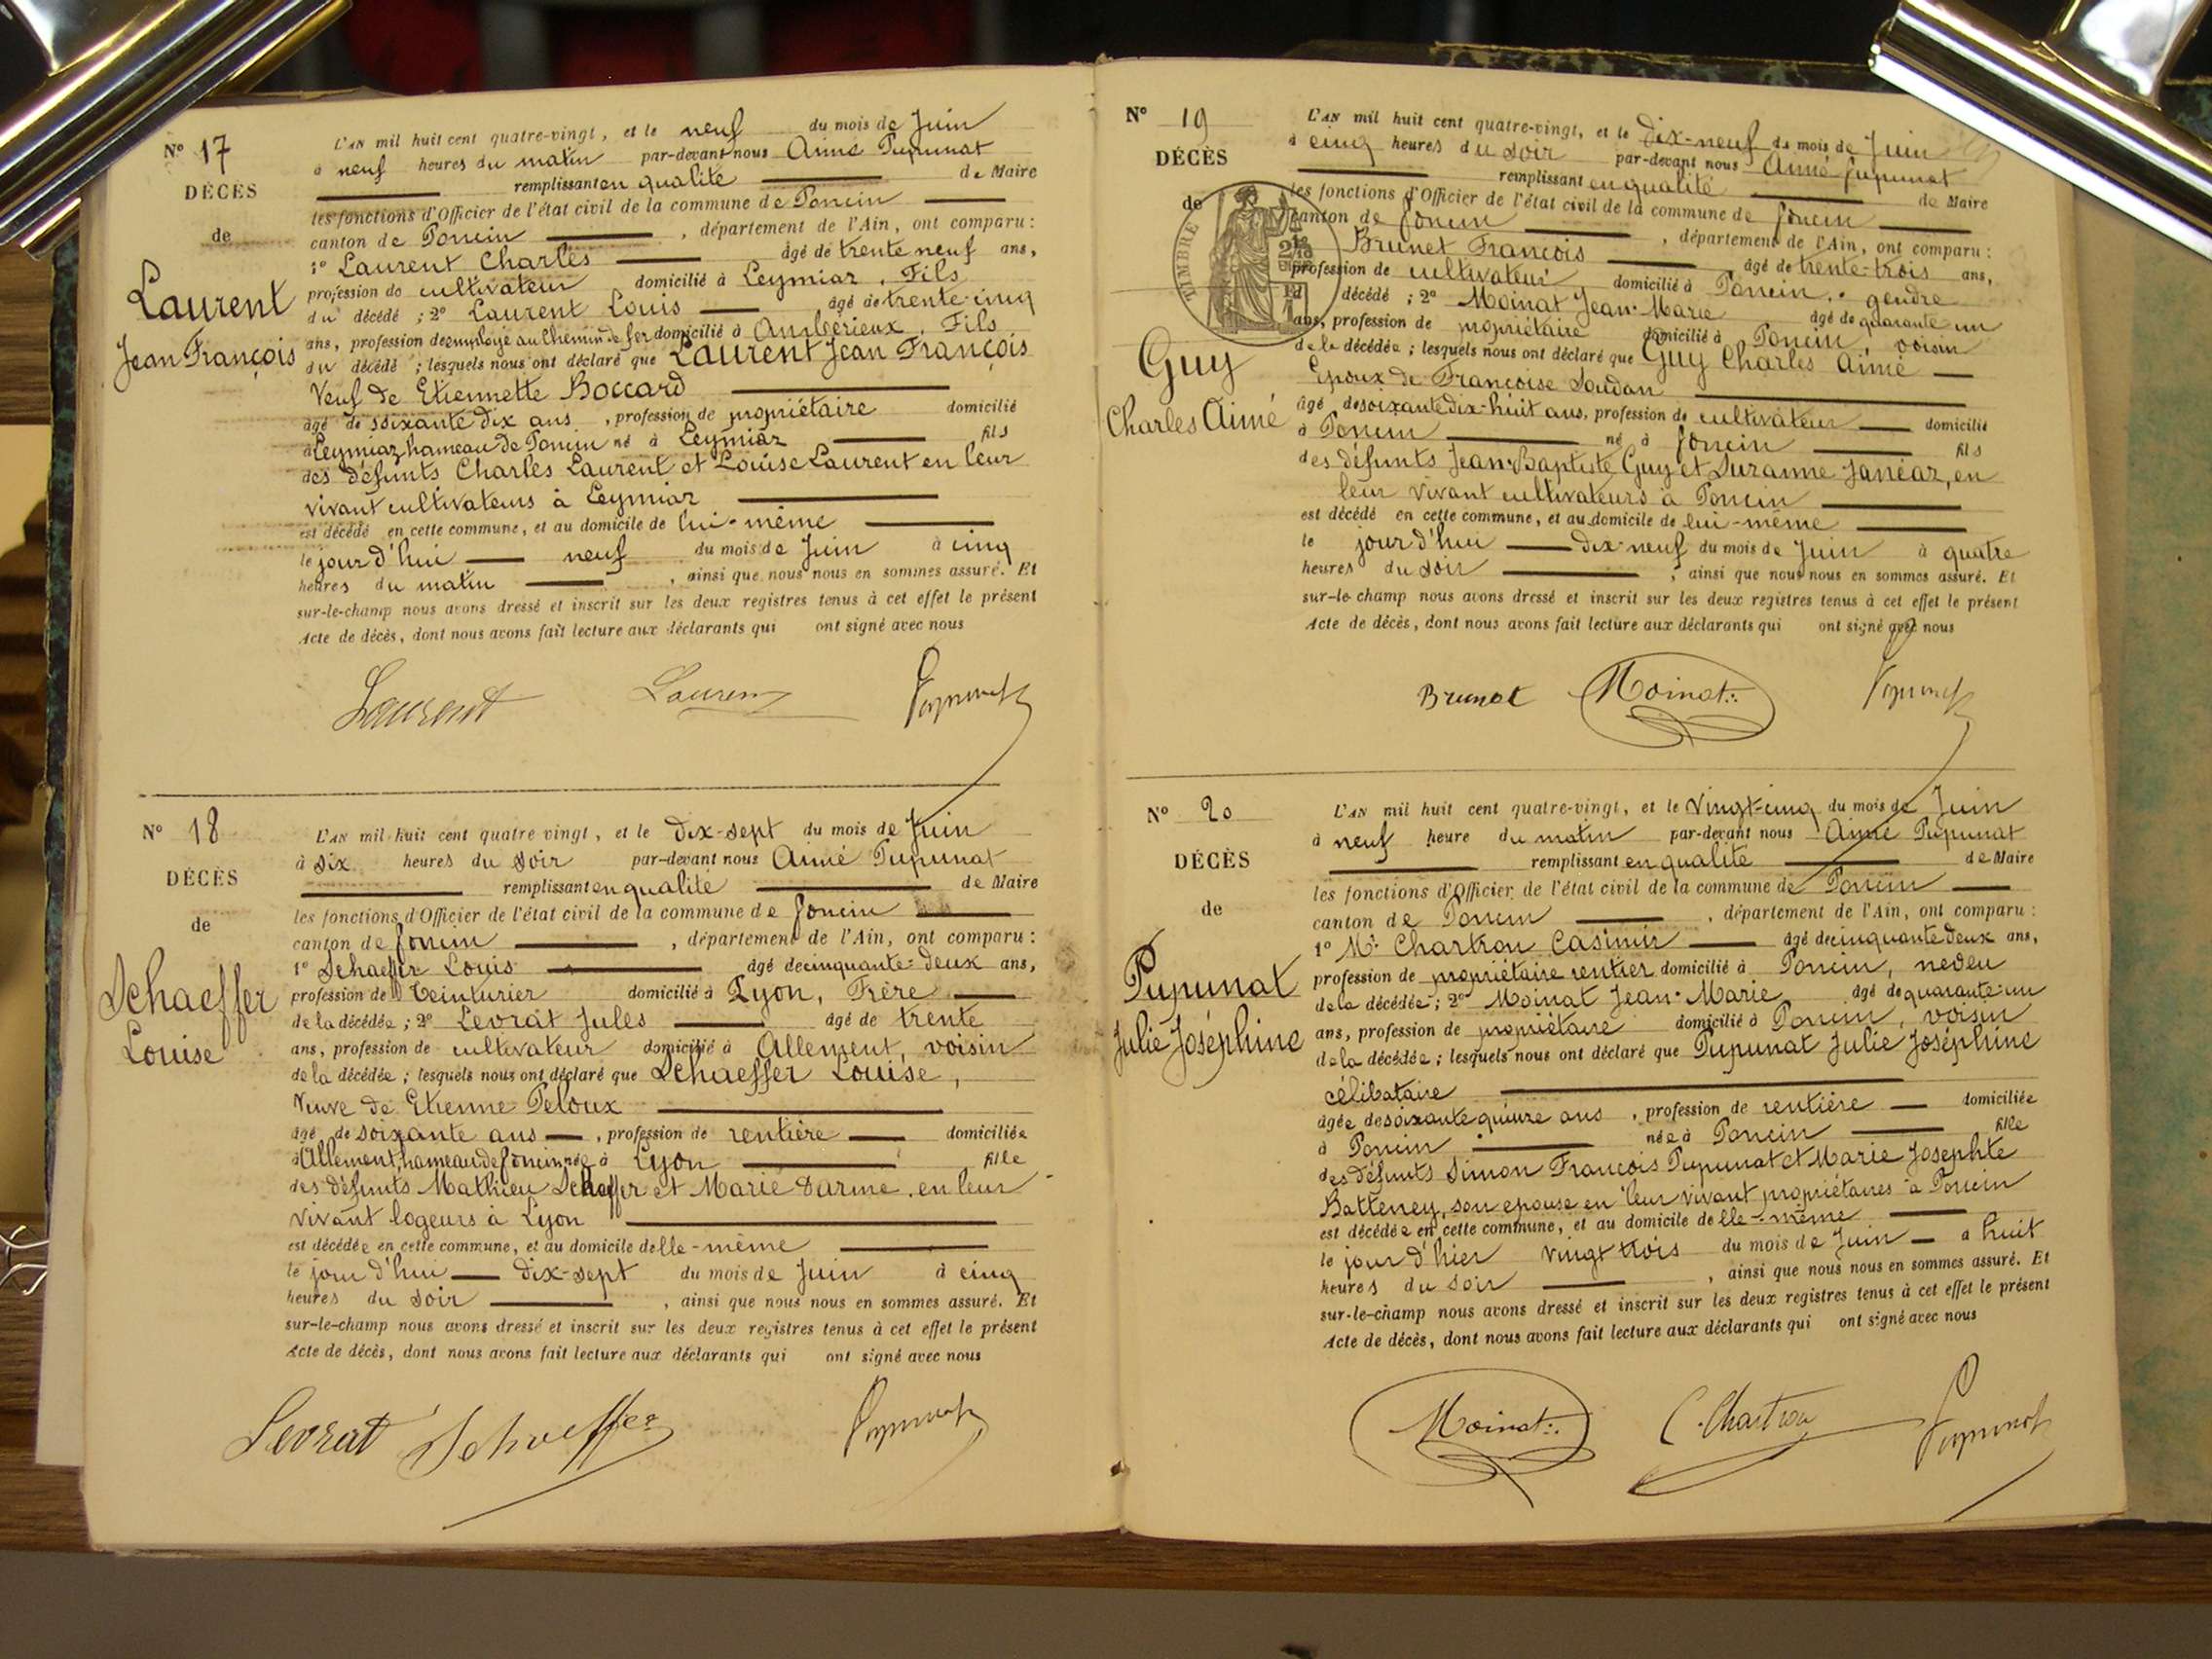 N° 17
DÉCÈS
de
Laurent
Jean François
L'AN mil huit cent quatre-vingt, et le neuf du mois de Juin
à neuf heures du matin par-devant nous Aimé Pupunat
remplissant en qualité de Maire
les fonctions d'Officier de l'état civil de la commune de Poncin
canton de Poncin, département de l'Ain, ont comparu :
1° Laurent Charles âgé de trente neuf ans,
profession de cultivateur domicilié à Leymiaz, Fils
du décédé ; 2° Laurent Louis âgé de trente-cinq
ans, profession de employé au Chemin de fer domicilié à Ambérieux, Fils
du décédé ; lesquels nous ont déclaré que Laurent Jean François
Veuf de Etiennette Boccard
âgé de soixante dix ans, profession de propriétaire domicilié
à Leymiaz, hameau de Poncin né à Leymiaz fils
des défunts Charles Laurent et Louise Laurent en leur
vivant cultivateurs à Leymiaz
est décédé en cette commune, et au domicile de lui-même
le jour d'hui neuf du mois de Juin à cinq
heures du matin, ainsi que nous nous en sommes assuré. Et
sur-le-champ nous avons dressé et inscrit sur les deux registres tenus à cet effet le présent
Acte de décès, dont nous avons fait lecture aux déclarants qui ont signé avec nous
Laurent Laurent Pupunat
N° 18
DÉCÈS
de
Schaeffer
Louise
L'AN mil huit cent quatre vingt, et le dix-sept du mois de Juin
à six heures du soir par-devant nous Aimé Pupunat
remplissant en qualité de Maire
les fonctions d'Officier de l'état civil de la commune de Poncin
canton de Poncin, département de l'Ain, ont comparu :
1° Schaeffer Louis âgé de cinquante-deux ans,
profession de Teinturier domicilié à Lyon, Frère
de la décédée ; 2° Levrat Jules âgé de trente
ans, profession de cultivateur domicilié à Allement, voisin
de la décédée ; lesquels nous ont déclaré que Schaeffer Louise,
Veuve de Etienne Peloux
âgé de soixante ans, profession de rentière domiciliée
à Allement, hameau de Poncin née à Lyon fille
des défunts Mathieu Schaeffer et Marie Darme, en leur
vivant logeurs à Lyon
est décédée en cette commune, et au domicile d'elle-même
le jour d'hui dix-sept du mois de Juin à cinq
heures du soir, ainsi que nous nous en sommes assuré. Et
sur-le-champ nous avons dressé et inscrit sur les deux registres tenus à cet effet le présent
Acte de décès, dont nous avons fait lecture aux déclarants qui ont signé avec nous
Levrat Schaeffer Pupunat
N° 19
DÉCÈS
de
TIMBRE
Guy
Charles Aimé
L'AN mil huit cent quatre-vingt, et le dix-neuf du mois de Juin
à cinq heures du soir par-devant nous Aimé Pupunat
remplissant en qualité de Maire
les fonctions d'Officier de l'état civil de la commune de Poncin
canton de Poncin, département de l'Ain, ont comparu :
Brunet François âgé de trente-trois ans,
profession de cultivateur domicilié à Poncin, gendre
décédé ; 2° Moinat Jean-Marie âgé de quarante un
ans, profession de propriétaire domicilié à Poncin, voisin
de le décédée ; lesquels nous ont déclaré que Guy Charles Aimé
Epoux de Françoise Soudan
âgé de soixante dix-huit ans, profession de cultivateur domicilié
à Poncin né à Poncin fils
des défunts Jean-Baptiste Guy et Suzanne Janéaz, en
leur vivant cultivateurs à Poncin
est décédé en cette commune, et au domicile de lui-même
le jour d'hui dix-neuf du mois de Juin à quatre
heures du soir, ainsi que nous nous en sommes assuré. Et
sur-le-champ nous avons dressé et inscrit sur les deux registres tenus à cet effet le présent
Acte de décès, dont nous avons fait lecture aux déclarants qui ont signé avec nous
Brunet Moinat Pupunat
N° 20
DÉCÈS
de
Pupunat
Julie Joséphine
L'AN mil huit cent quatre-vingt, et le Vingt-cinq du mois de Juin
à neuf heure du matin par-devant nous Aimé Pupunat
remplissant en qualité de Maire
les fonctions d'Officier de l'état civil de la commune de Poncin
canton de Poncin, département de l'Ain, ont comparu :
1° Mr Chartron Casimir âgé de cinquante deux ans,
profession de propriétaire rentier domicilié à Poncin, neveu
de la décédée ; 2° Moinat Jean-Marie âgé de quarante-un
ans, profession de propriétaire domicilié à Poncin, voisin
de la décédée ; lesquels nous ont déclaré que Pupunat Julie Joséphine
célibataire
âgée de soixante quinze ans, profession de rentière domiciliée
à Poncin née à Poncin fille
des défunts Simon François Pupunat et Marie Josephte
Batteney, son epouse en leur vivant propriétaires à Poncin
est décédée en cette commune, et au domicile d'elle-même
le jour d'hier vingt trois du mois de Juin à huit
heures du soir, ainsi que nous nous en sommes assuré. Et
sur-le-champ nous avons dressé et inscrit sur les deux registres tenus à cet effet le présent
Acte de décès, dont nous avons fait lecture aux déclarants qui ont signé avec nous
Moinat C. Chartron Pupunat